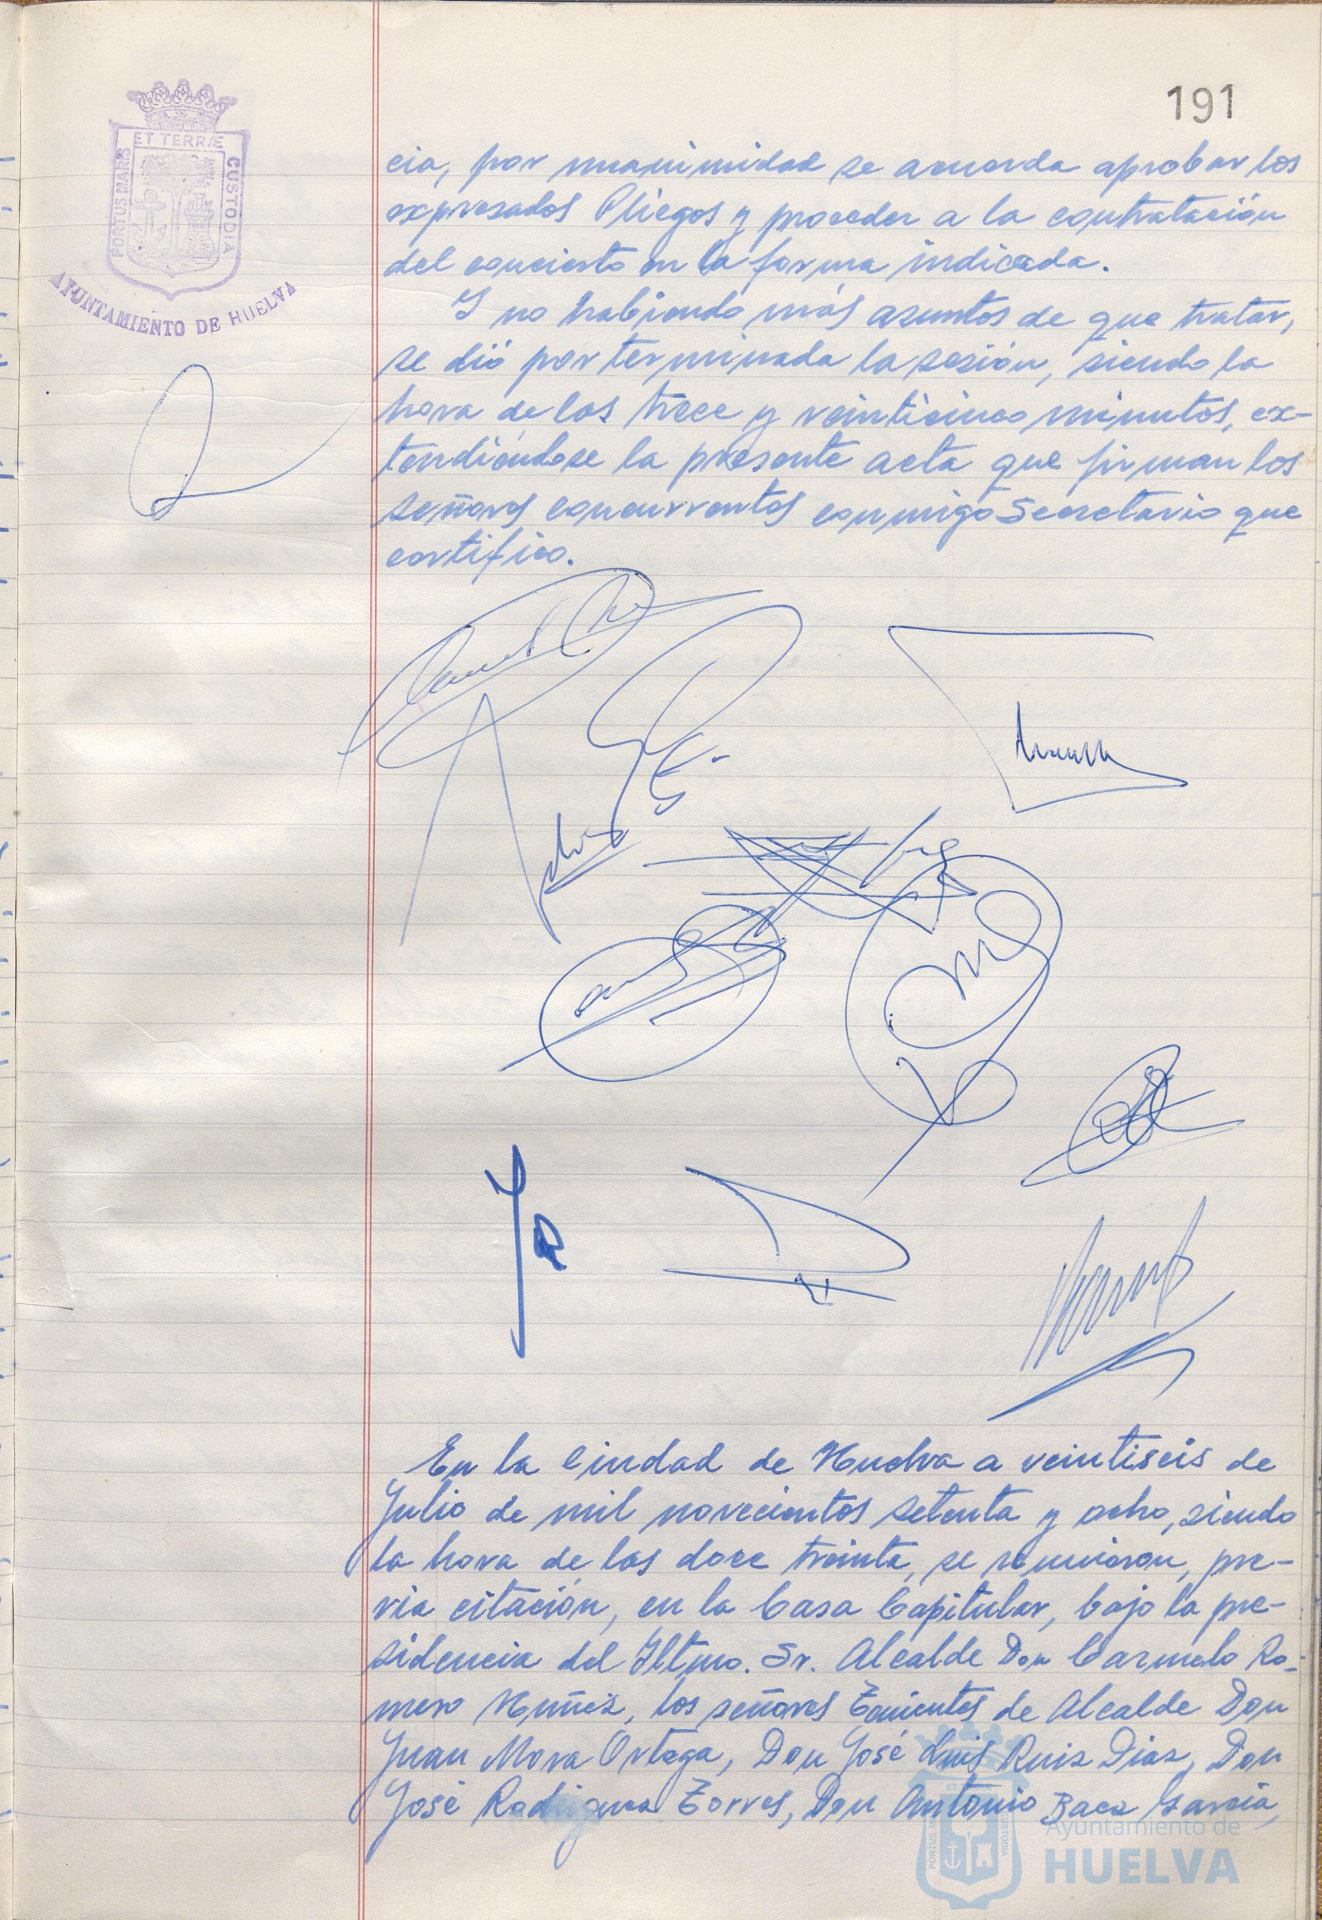 191
ET TERRÆ
PORTUS MARIS
CUSTODIA
AYUNTAMIENTO DE HUELVA
cia, por unanimidad se acuerda aprobar los
expresados Pliegos y proceder a la contratación
del concierto en la forma indicada.
Y no habiendo más asuntos de que tratar,
se dió por terminada la sesión, siendo la
hora de las trece y veinticinco minutos, ex-
tendiéndose la presente acta que firman los
señores concurrentes conmigo Secretario que
certifico.
En la Ciudad de Huelva a veintiseis de
Julio de mil novecientos setenta y ocho, siendo
la hora de las doce treinta, se reunieron, pre-
via citación, en la Casa Capitular, bajo la pre-
sidencia del Iltmo. Sr. Alcalde Don Carmelo Ro-
mero Núñez, los señores Tenientes de Alcalde Don
Juan Mora Ortega, Don José Luis Ruiz Diaz, Don
José Rodriguez Torres, Don Antonio Baca Garcia,
Ayuntamiento de
HUELVA